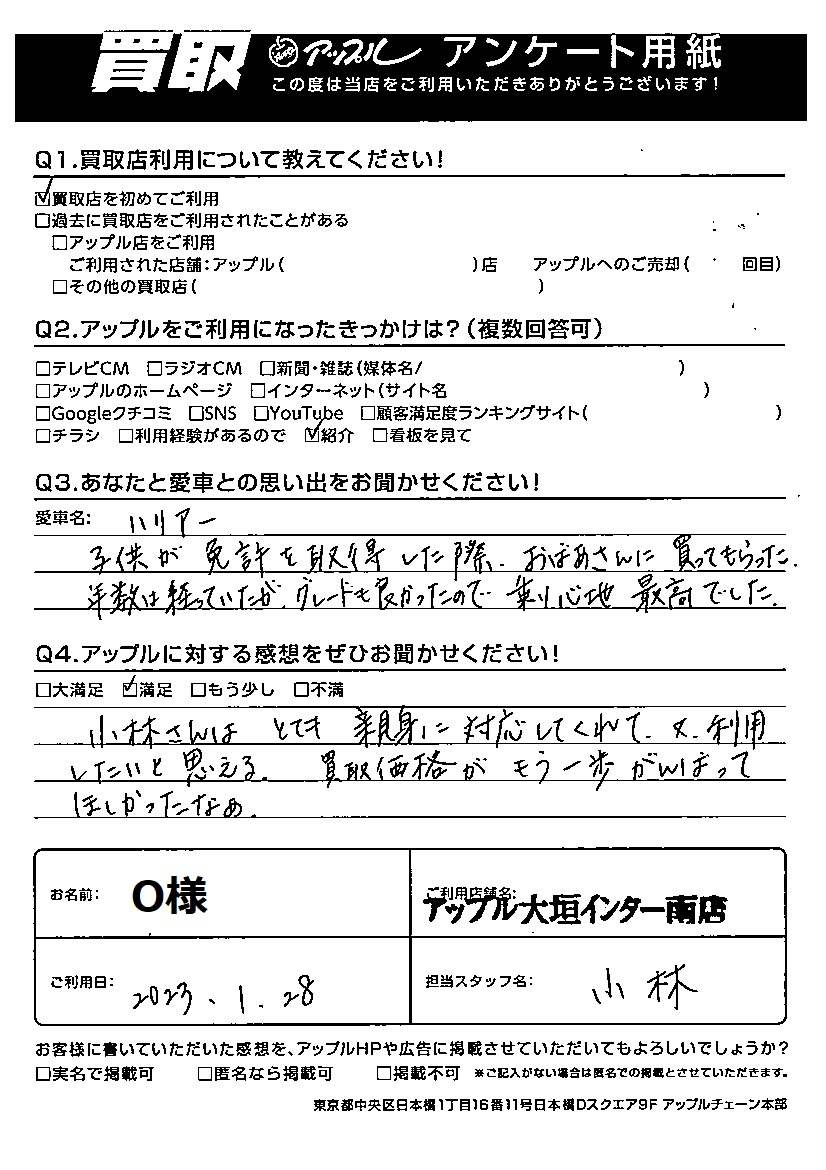 買取 アップル アンケート用紙
この度は当店をご利用いただきありがとうございます!
Q1.買取店利用について教えてください!
☑買取店を初めてご利用
□過去に買取店をご利用されたことがある
□アップル店をご利用
ご利用された店舗:アップル( )店 アップルへのご売却( 回目)
□その他の買取店( )
Q2.アップルをご利用になったきっかけは?(複数回答可)
□テレビCM □ラジオCM □新聞・雑誌(媒体名/ )
□アップルのホームページ □インターネット(サイト名 )
□Googleクチコミ □SNS □YouTube □顧客満足度ランキングサイト( )
□チラシ □利用経験があるので ☑紹介 □看板を見て
Q3.あなたと愛車との思い出をお聞かせください!
愛車名: ハリアー
子供が免許を取得した際、おばあさんに買ってもらった。
年数は経っていたが、グレードも良かったので乗り心地最高でした。
Q4.アップルに対する感想をぜひお聞かせください!
□大満足 ☑満足 □もう少し □不満
小林さんはとても親身に対応してくれて、又、利用
したいと思える。 買取価格がもう一歩がんばって
ほしかったなぁ。
お名前: O様 ご利用店舗名: アップル大垣インター南店
ご利用日: 2023.1.28 担当スタッフ名: 小林
お客様に書いていただいた感想を、アップルHPや広告に掲載させていただいてもよろしいでしょうか?
□実名で掲載可 □匿名なら掲載可 □掲載不可 ※ご記入がない場合は匿名での掲載とさせていただきます。
東京都中央区日本橋1丁目16番11号日本橋Dスクエア9F アップルチェーン本部